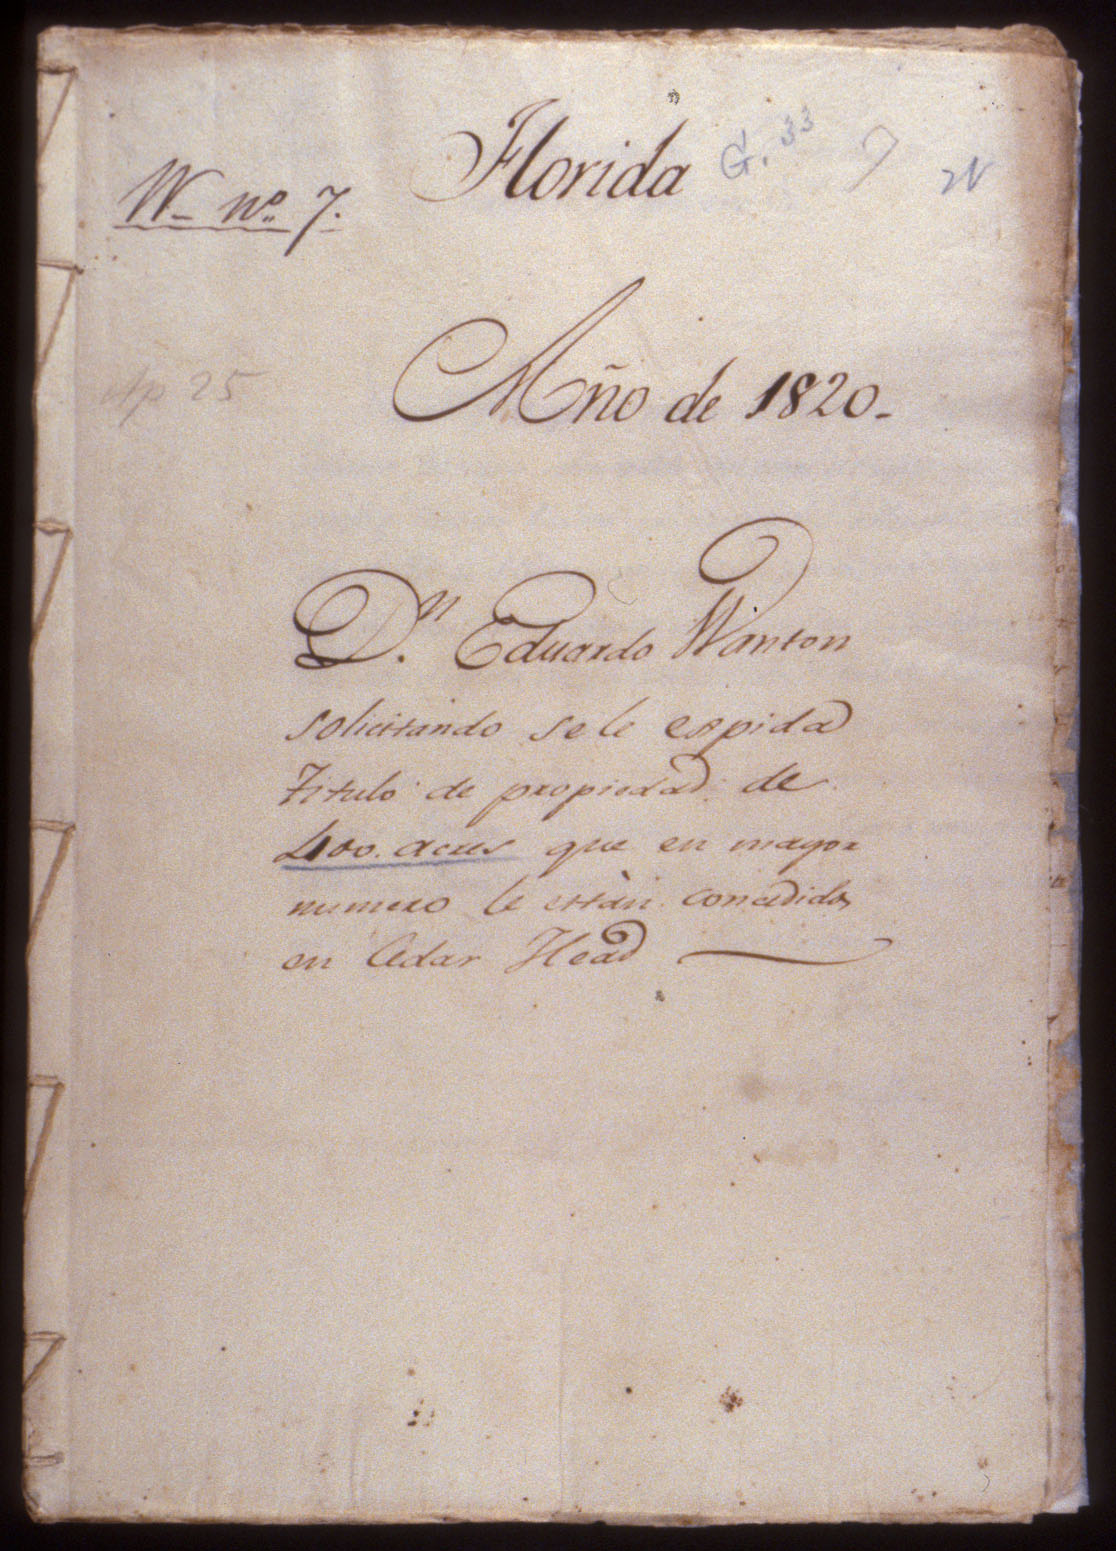 Florida G. 33 7 W
W- nº 7.
Año de 1820-
25
Dn. Eduardo Wanton
solicitando se le espida
Titulo de propiedad de
400. acres que en mayor
numero le estàn concedidos
en Cedar Head